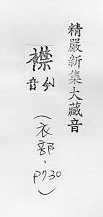 精嚴新集大藏音
襟
音
(衣部·
p730)